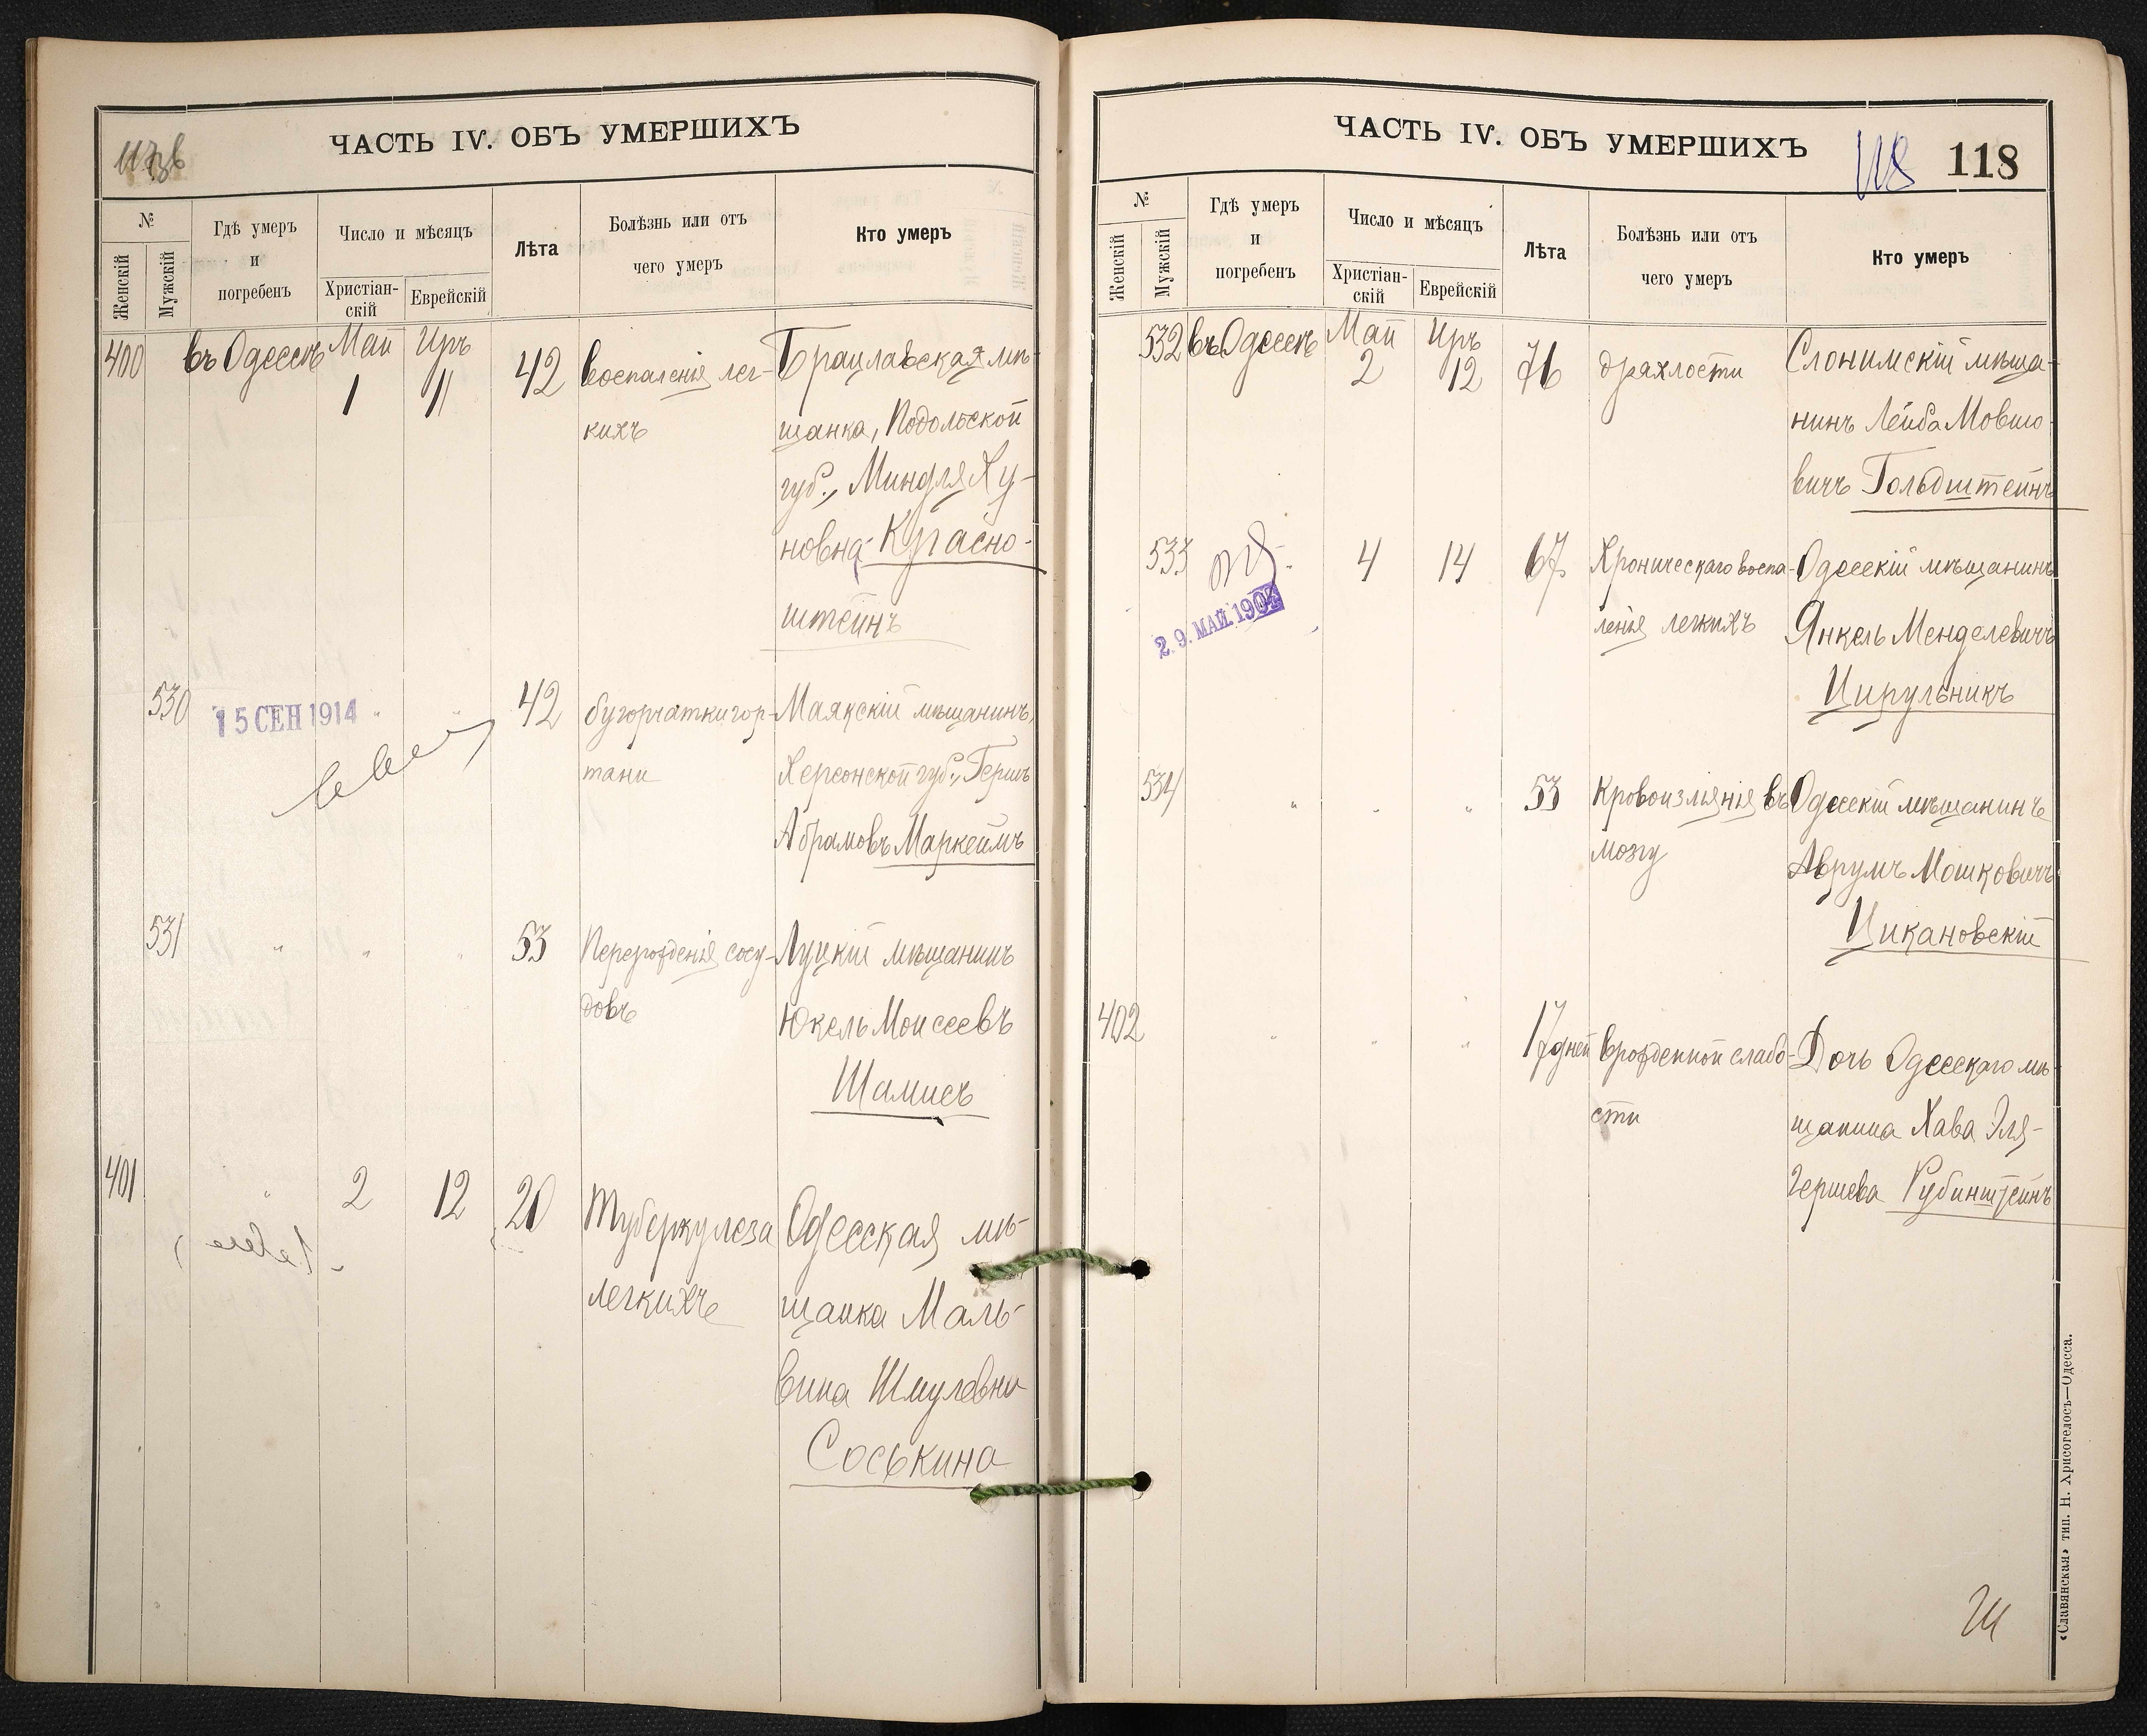 ЧАСТЬ IV. ОБЪ УМЕРШИХЪ
№
Женскій
Мужскій
Гдѣ умеръ
и
погребенъ
Число и мѣсяцъ
Христіан-
скій
Еврейскій
Лѣта
Болѣзнь или отъ
чего умеръ
Кто умеръ
400
въ Одессѣ
Май
1
Иръ
11
42
воспаленія лег-
кихъ
Брацлавская мѣ-
щанка, Подольской
губ., Миндля Ху-
новна Красно-
штейнъ
530
15 СЕН 1914
42
бугорчатки гор-
тани
Маякскій мѣщанинъ,
Херсонской губ., Гершъ
Абрамовъ Маркеимъ
531
"
"
53
Перерожденія сосу-
довъ
Луцкій мѣщанинъ
Юкель Моисеевъ
Шамисъ
401
"
2
12
20
Туберкулеза
легкихъ
Одесская мѣ-
щанка Маль-
вина Шмулевна
Соськина
ЧАСТЬ IV. ОБЪ УМЕРШИХЪ
118
118
№
Женскій
Мужскій
Гдѣ умеръ
и
погребенъ
Число и мѣсяцъ
Христіан-
скій
Еврейскій
Лѣта
Болѣзнь или отъ
чего умеръ
Кто умеръ
532
въ Одессѣ
Май
2
Иръ
12
76
дряхлости
Слонимскій мѣща-
нинъ Лейба Мовшо-
вичъ Гольдштейнъ
533
29. МАЙ. 190
4
14
67
Хроническаго воспа-
ленія легкихъ
Одесскій мѣщанинъ
Янкель Менделевичъ
Цирульникъ
534
"
"
"
53
Кровоизліянія въ
мозгу
Одесскій мѣщанинъ
Аврумъ Мошковичъ
Цикановскій
402
"
"
"
17 дней
врожденной слабо-
сти
Дочь Одесскаго мѣ-
щанина Хава Эля-
Гершева Рубинштейнъ
«Славянская» тип. Н. Хрисогелосъ—Одесса.